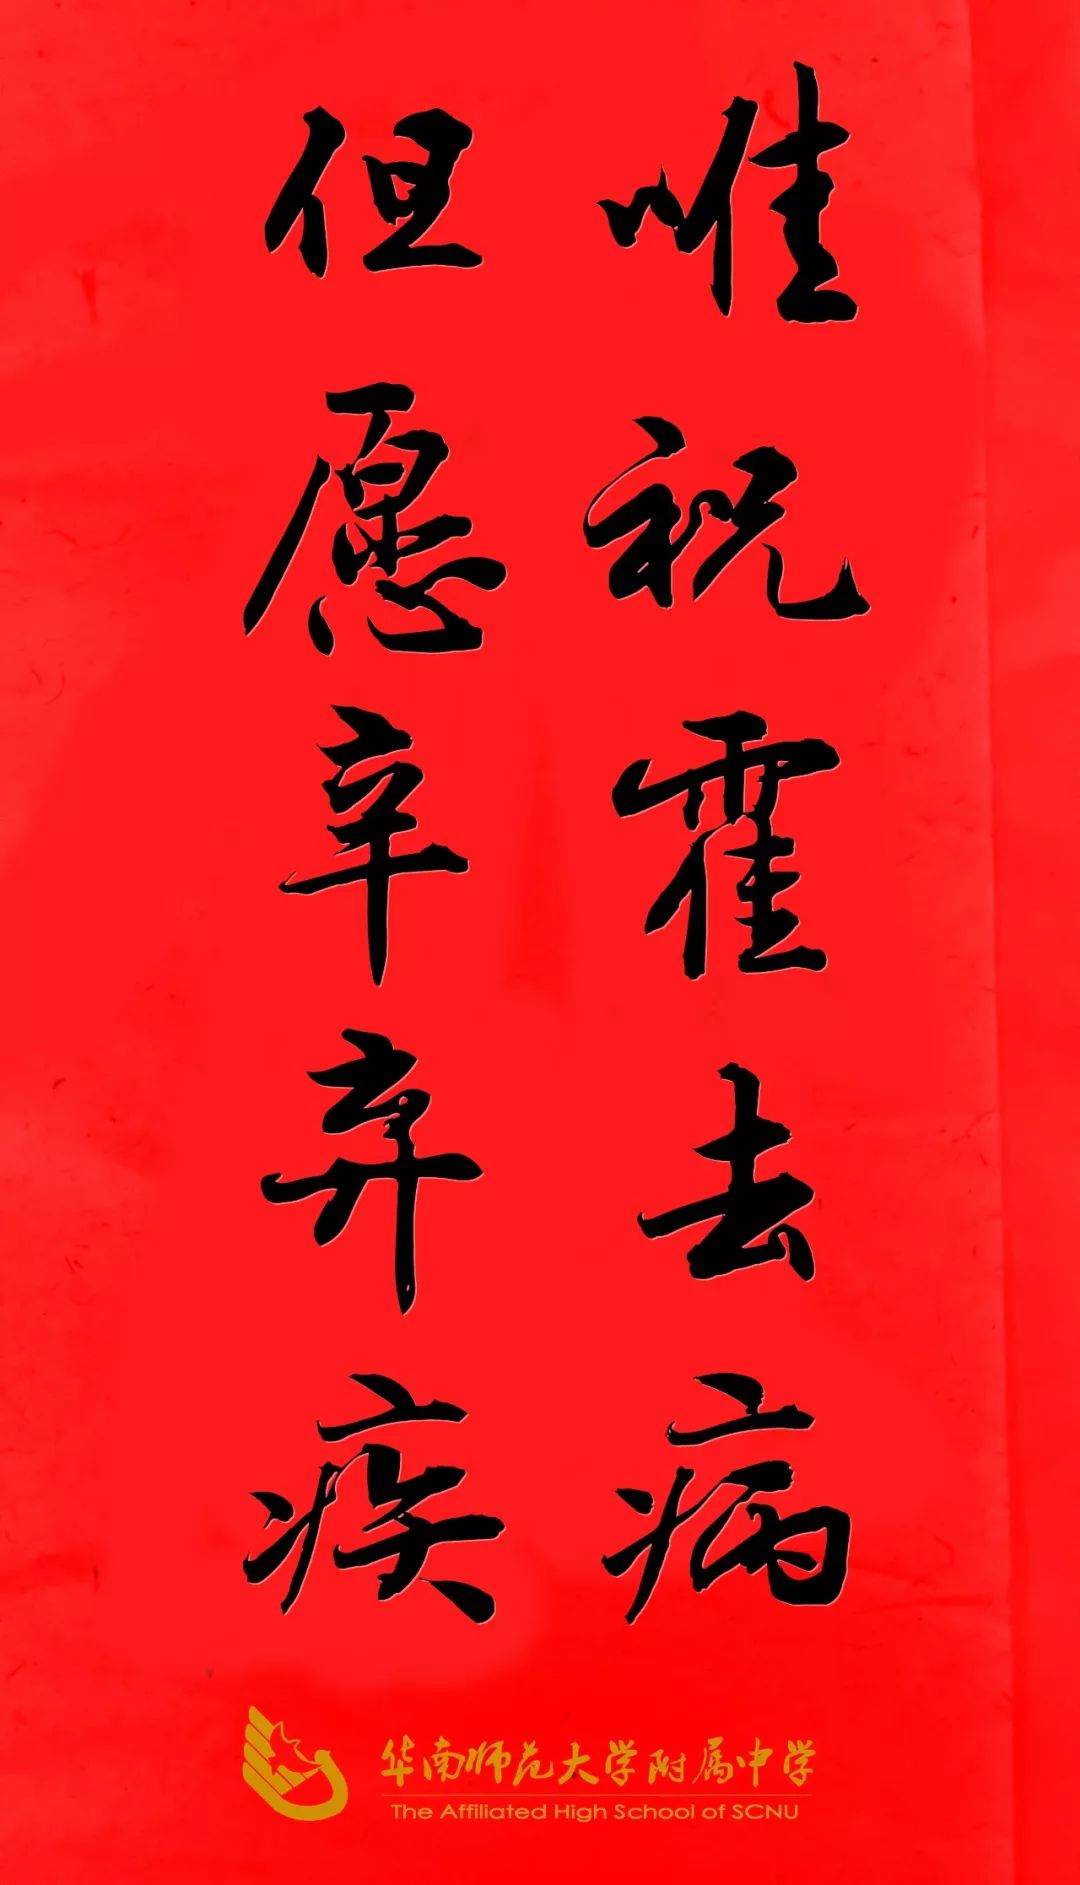 唯祝霍去病
但愿辛弃疾
华南师范大学附属中学
The Affiliated High School of SCNU